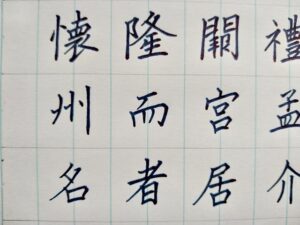 禮孟介
宮居
隆而者
懷州名